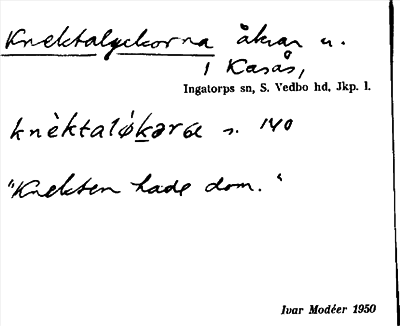 Knektalyckorna åkrar u.
i Karås,
Ingatorps sn, S. Vedbo hd, Jkp. l.
knèktalǿkəræ s. 140
"Knekten hade dom."
Ivar Modéer 1950